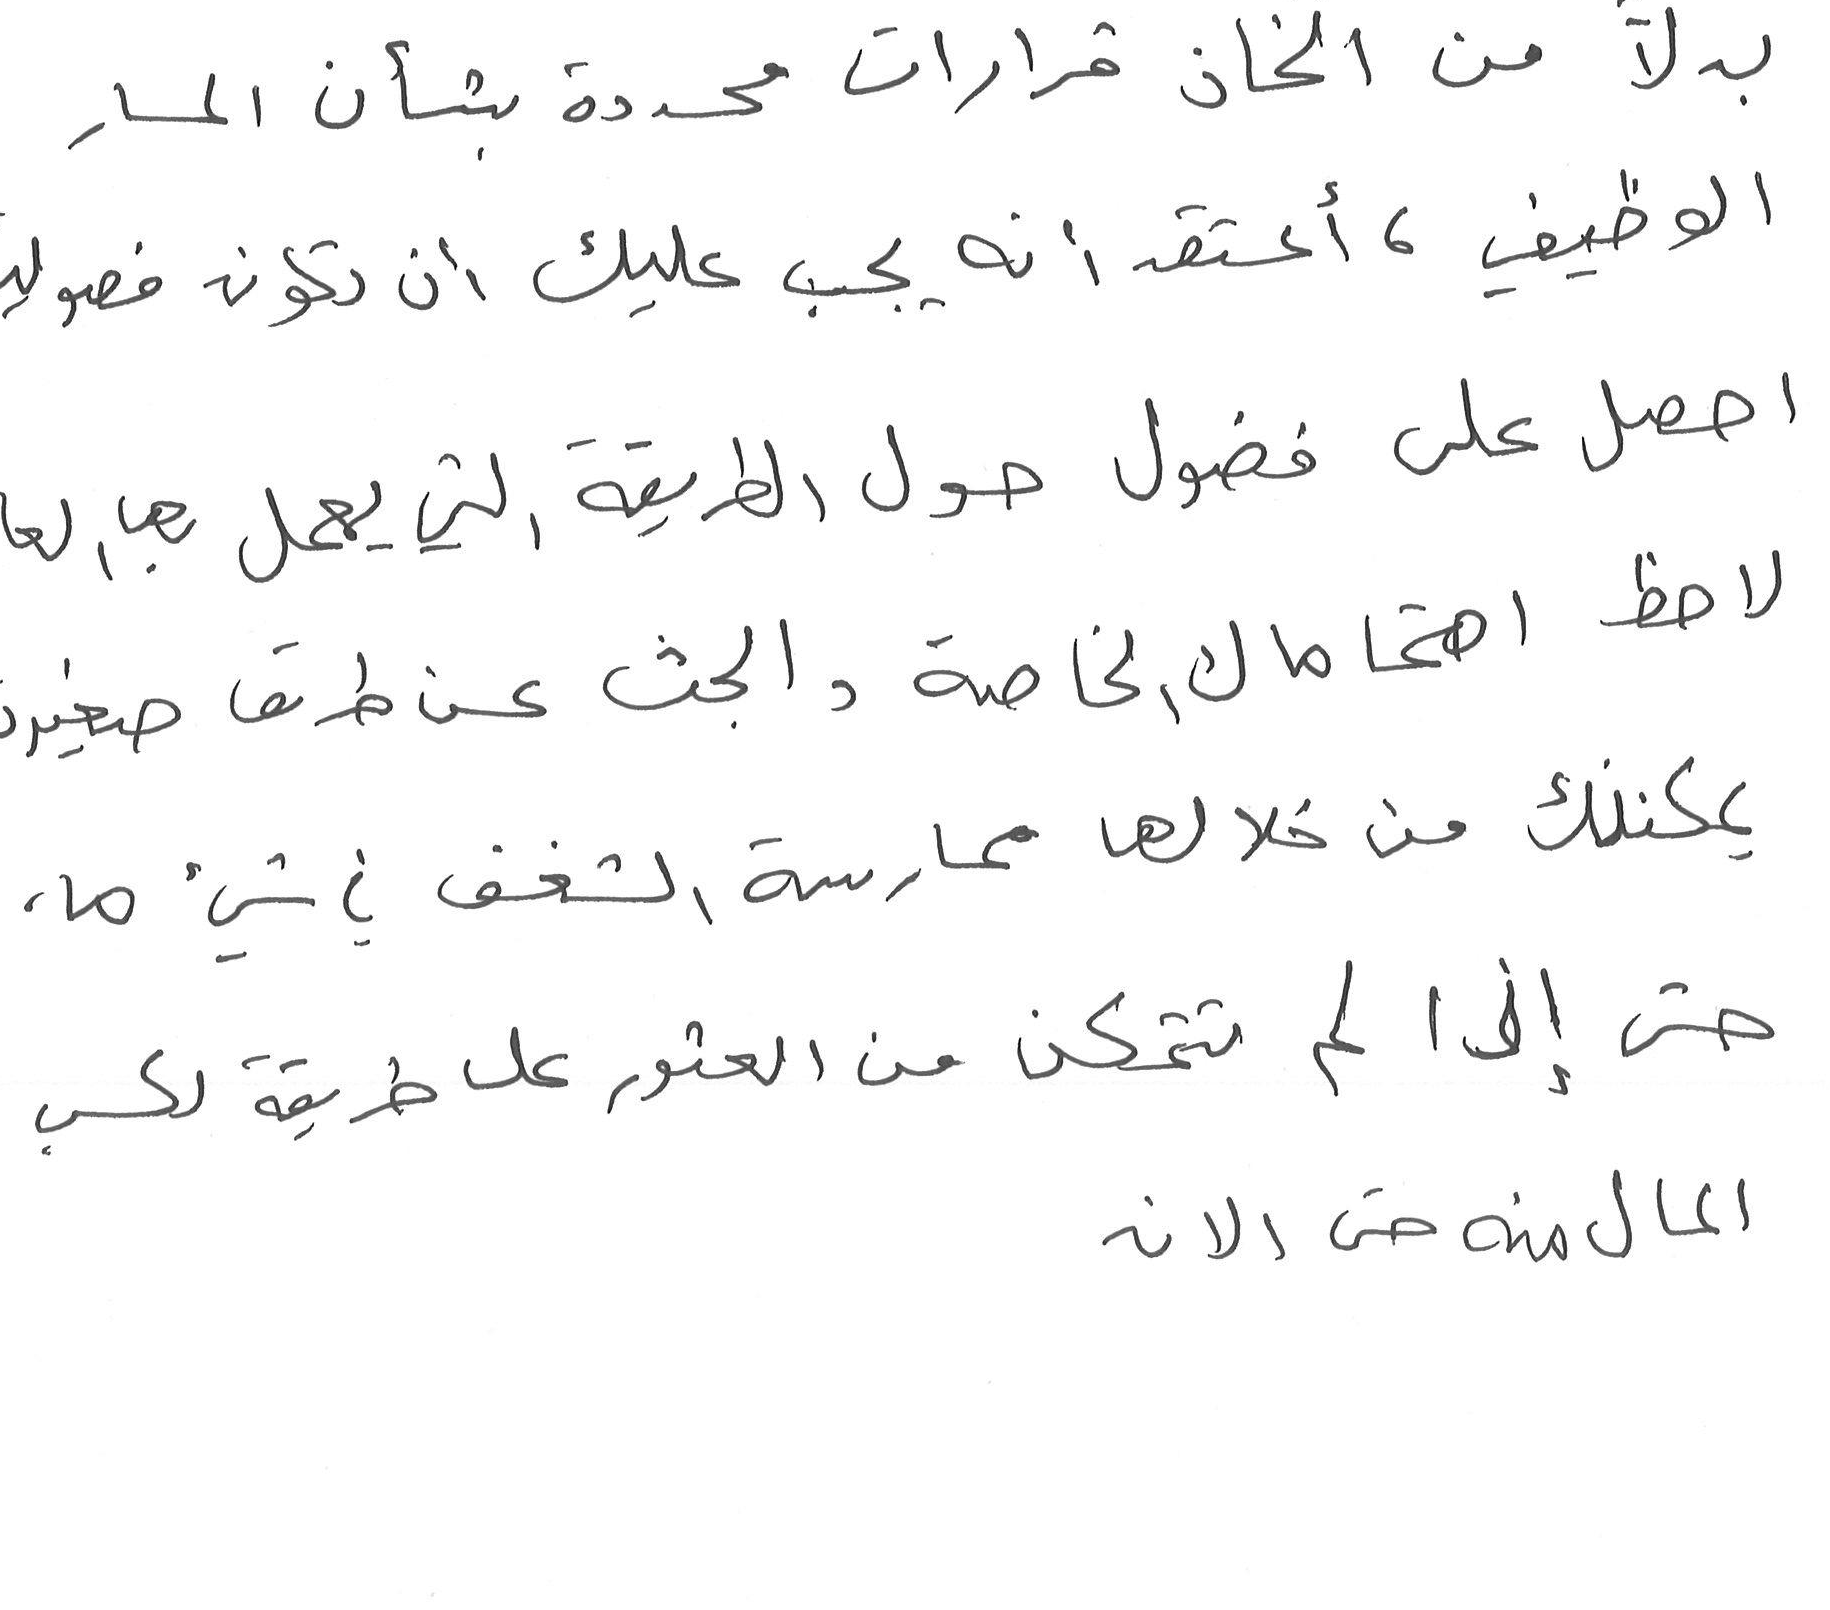 بدلاً من اتخاذ قرارات محددة بشأن المسار
الوظيفي ، أعتقد أنه يجب عليك أن تكون فضوليا
احصل على فضول حول الطريقة التي يعمل بها
لاحظ اهتماماتك الخاصة والبحث عن طرقا صغيرة
يمكنك من خلالها ممارسة الشغف في شيء ما،
حتى إذا لم تتمكن من العثور على طريقة لكسب
المال منه حتى الان